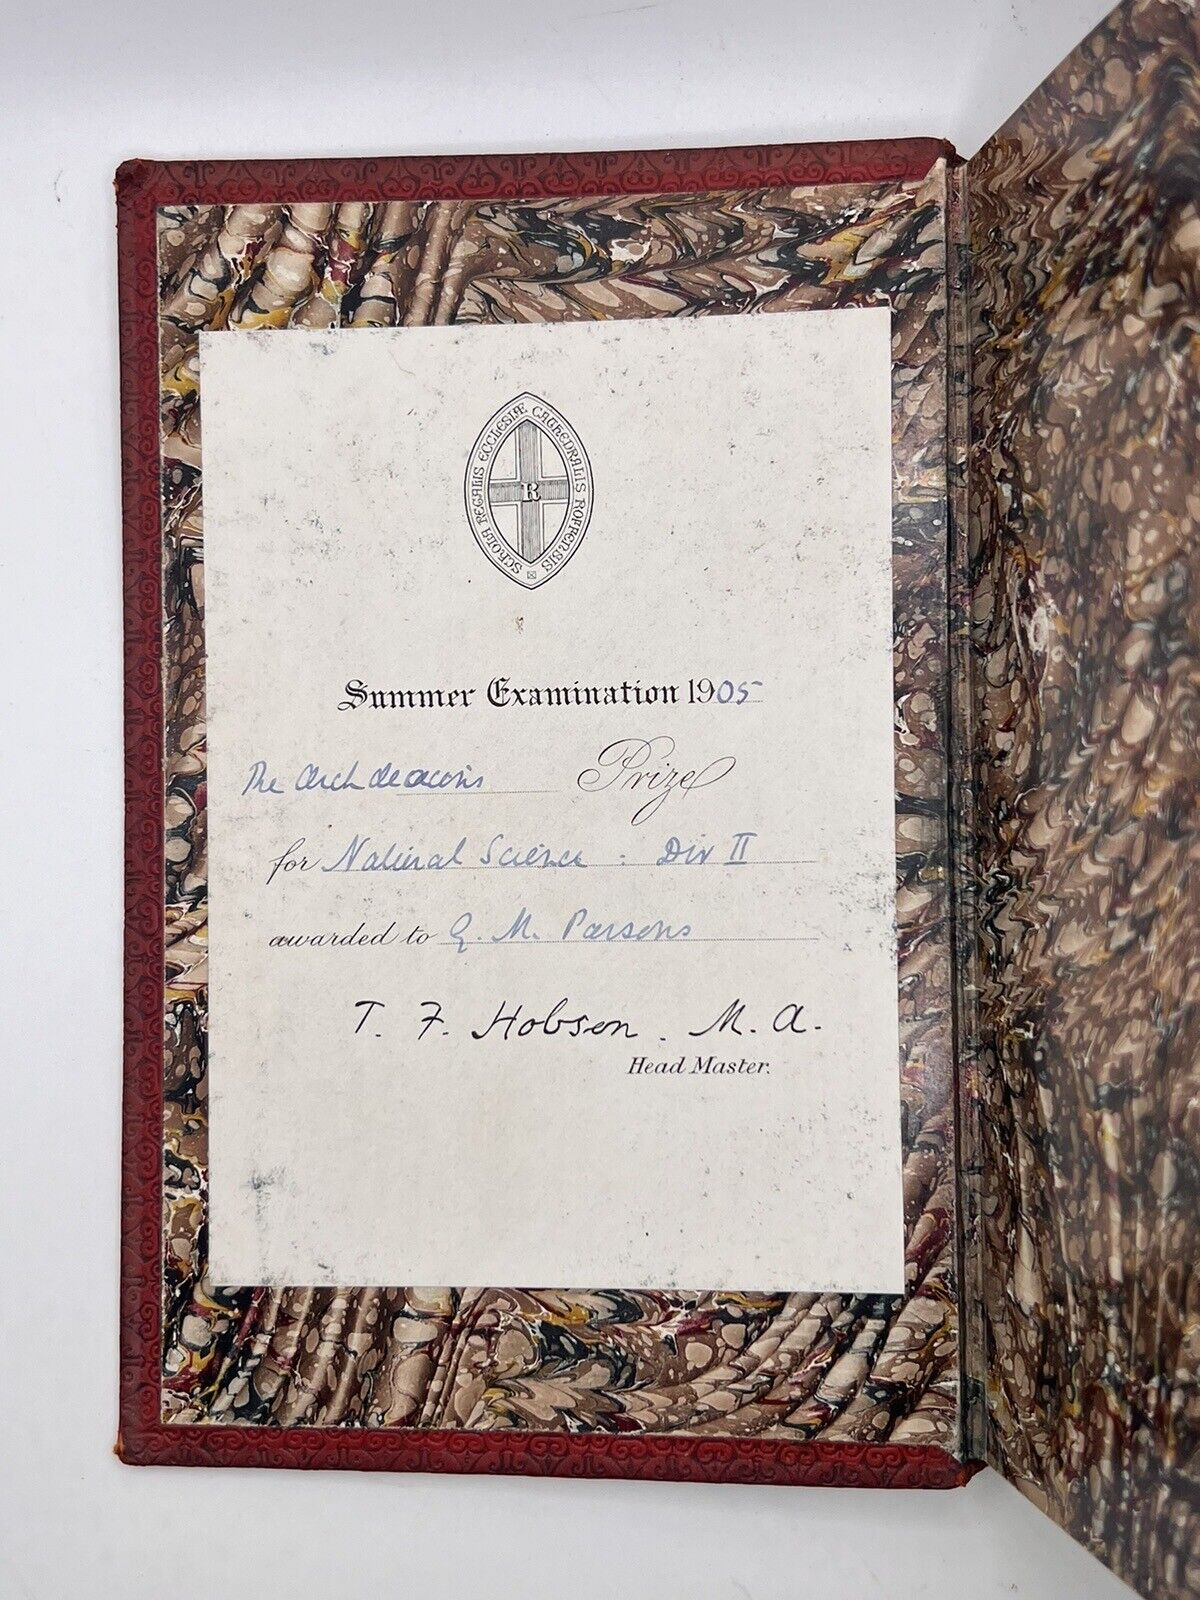 SCHOLA REGALIS ECCLESIÆ CATHEDRALIS ROFFENSIS
R
Summer Examination 1905
The Archdeacon's Prize
for Natural Science . Div II
awarded to G. M. Parsons
T. F. Hobson. M.A.
Head Master.